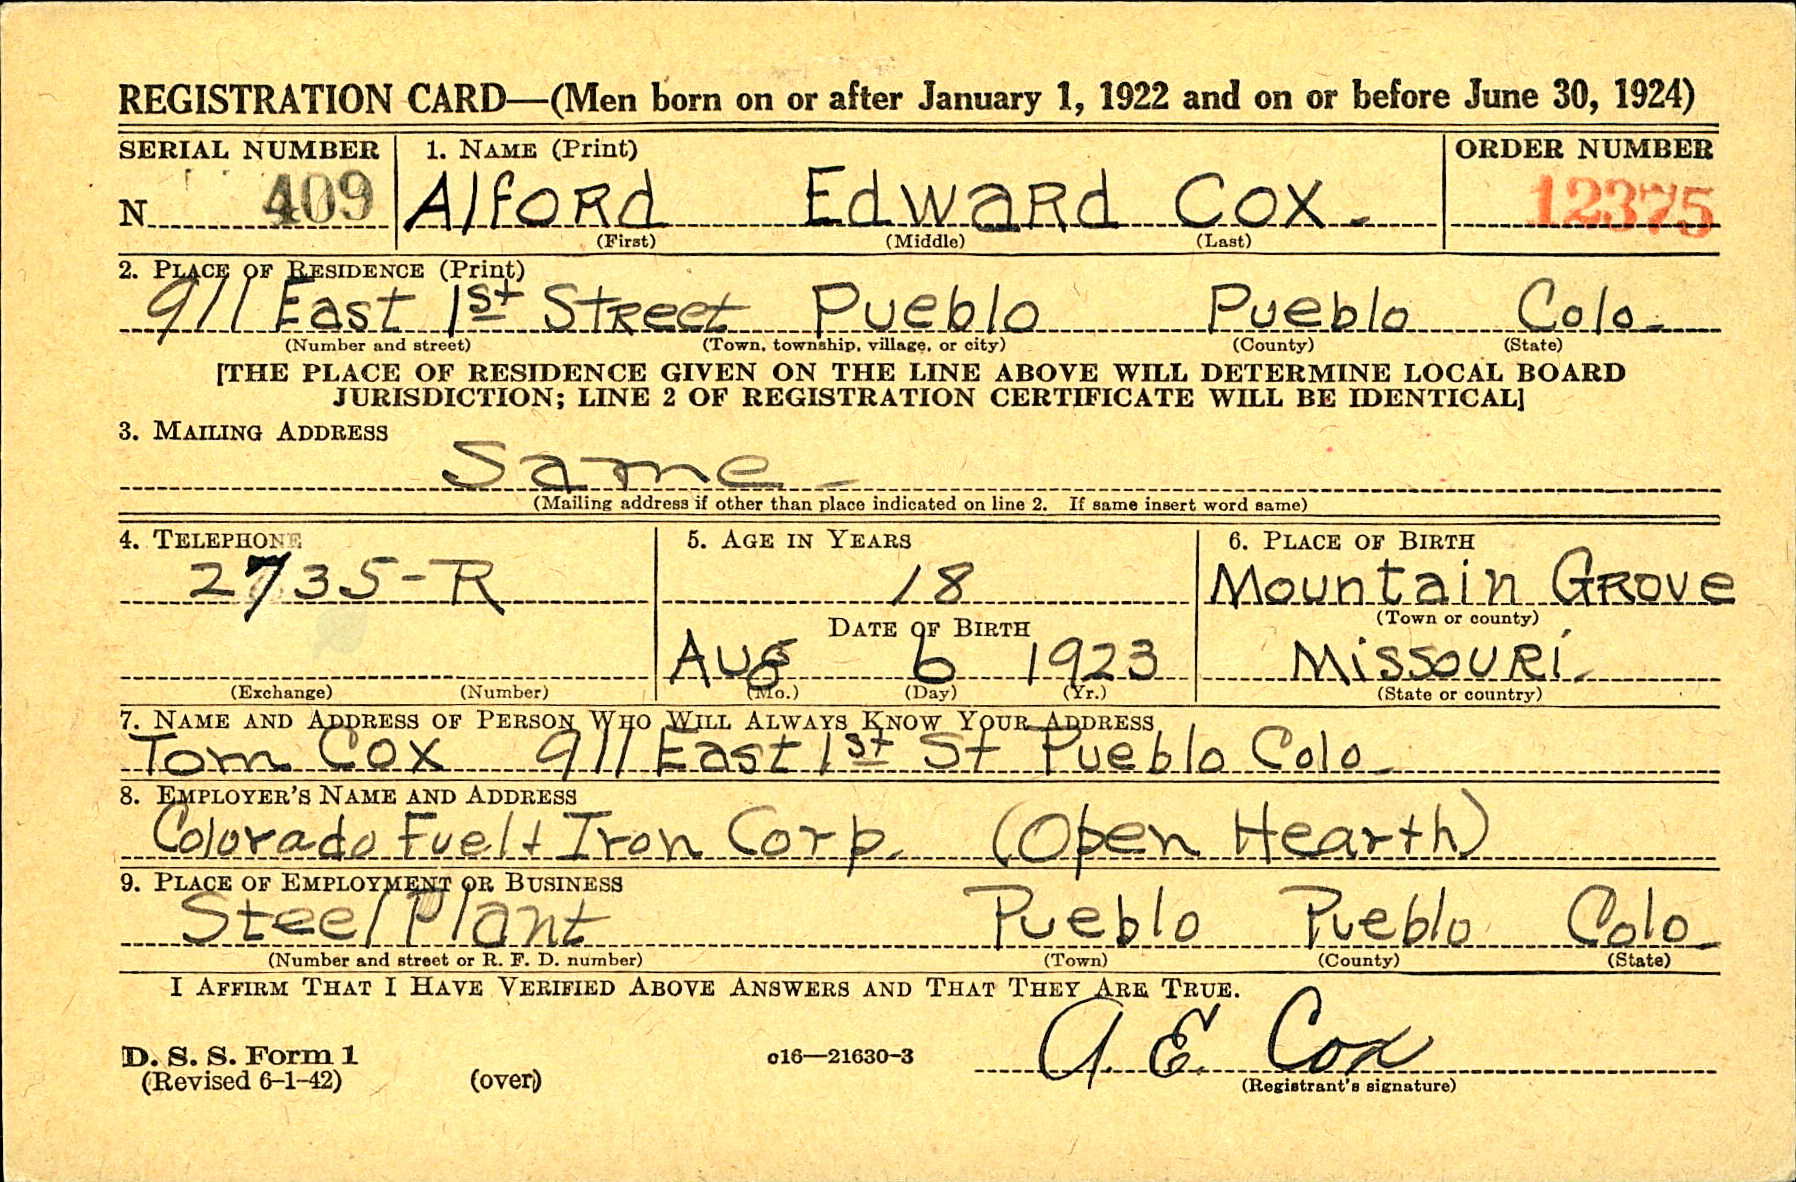 REGISTRATION CARD—(Men born on or after January 1, 1922 and on or before June 30, 1924)
SERIAL NUMBER 1. NAME (Print) ORDER NUMBER
N 409 Alford Edward Cox 12375
(First) (Middle) (Last)
2. PLACE OF RESIDENCE (Print)
911 East 1st Street Pueblo Pueblo Colo
(Number and street) (Town, township, village, or city) (County) (State)
[THE PLACE OF RESIDENCE GIVEN ON THE LINE ABOVE WILL DETERMINE LOCAL BOARD
JURISDICTION; LINE 2 OF REGISTRATION CERTIFICATE WILL BE IDENTICAL]
3. MAILING ADDRESS
Same
(Mailing address if other than place indicated on line 2. If same insert word same)
4. TELEPHONE 5. AGE IN YEARS 6. PLACE OF BIRTH
2735-R 18 Mountain Grove
(Town or county)
DATE OF BIRTH
Aug 6 1923 Missouri.
(Exchange) (Number) (Mo.) (Day) (Yr.) (State or country)
7. NAME AND ADDRESS OF PERSON WHO WILL ALWAYS KNOW YOUR ADDRESS
Tom Cox 911 East 1st St Pueblo Colo
8. EMPLOYER'S NAME AND ADDRESS
Colorado Fuel + Iron Corp. (Open Hearth)
9. PLACE OF EMPLOYMENT OR BUSINESS
Steel Plant Pueblo Pueblo Colo
(Number and street or R. F. D. number) (Town) (County) (State)
I AFFIRM THAT I HAVE VERIFIED ABOVE ANSWERS AND THAT THEY ARE TRUE.
A. E. Cox
D. S. S. Form 1 c16—21630-3
(Revised 6-1-42) (over) (Registrant's signature)